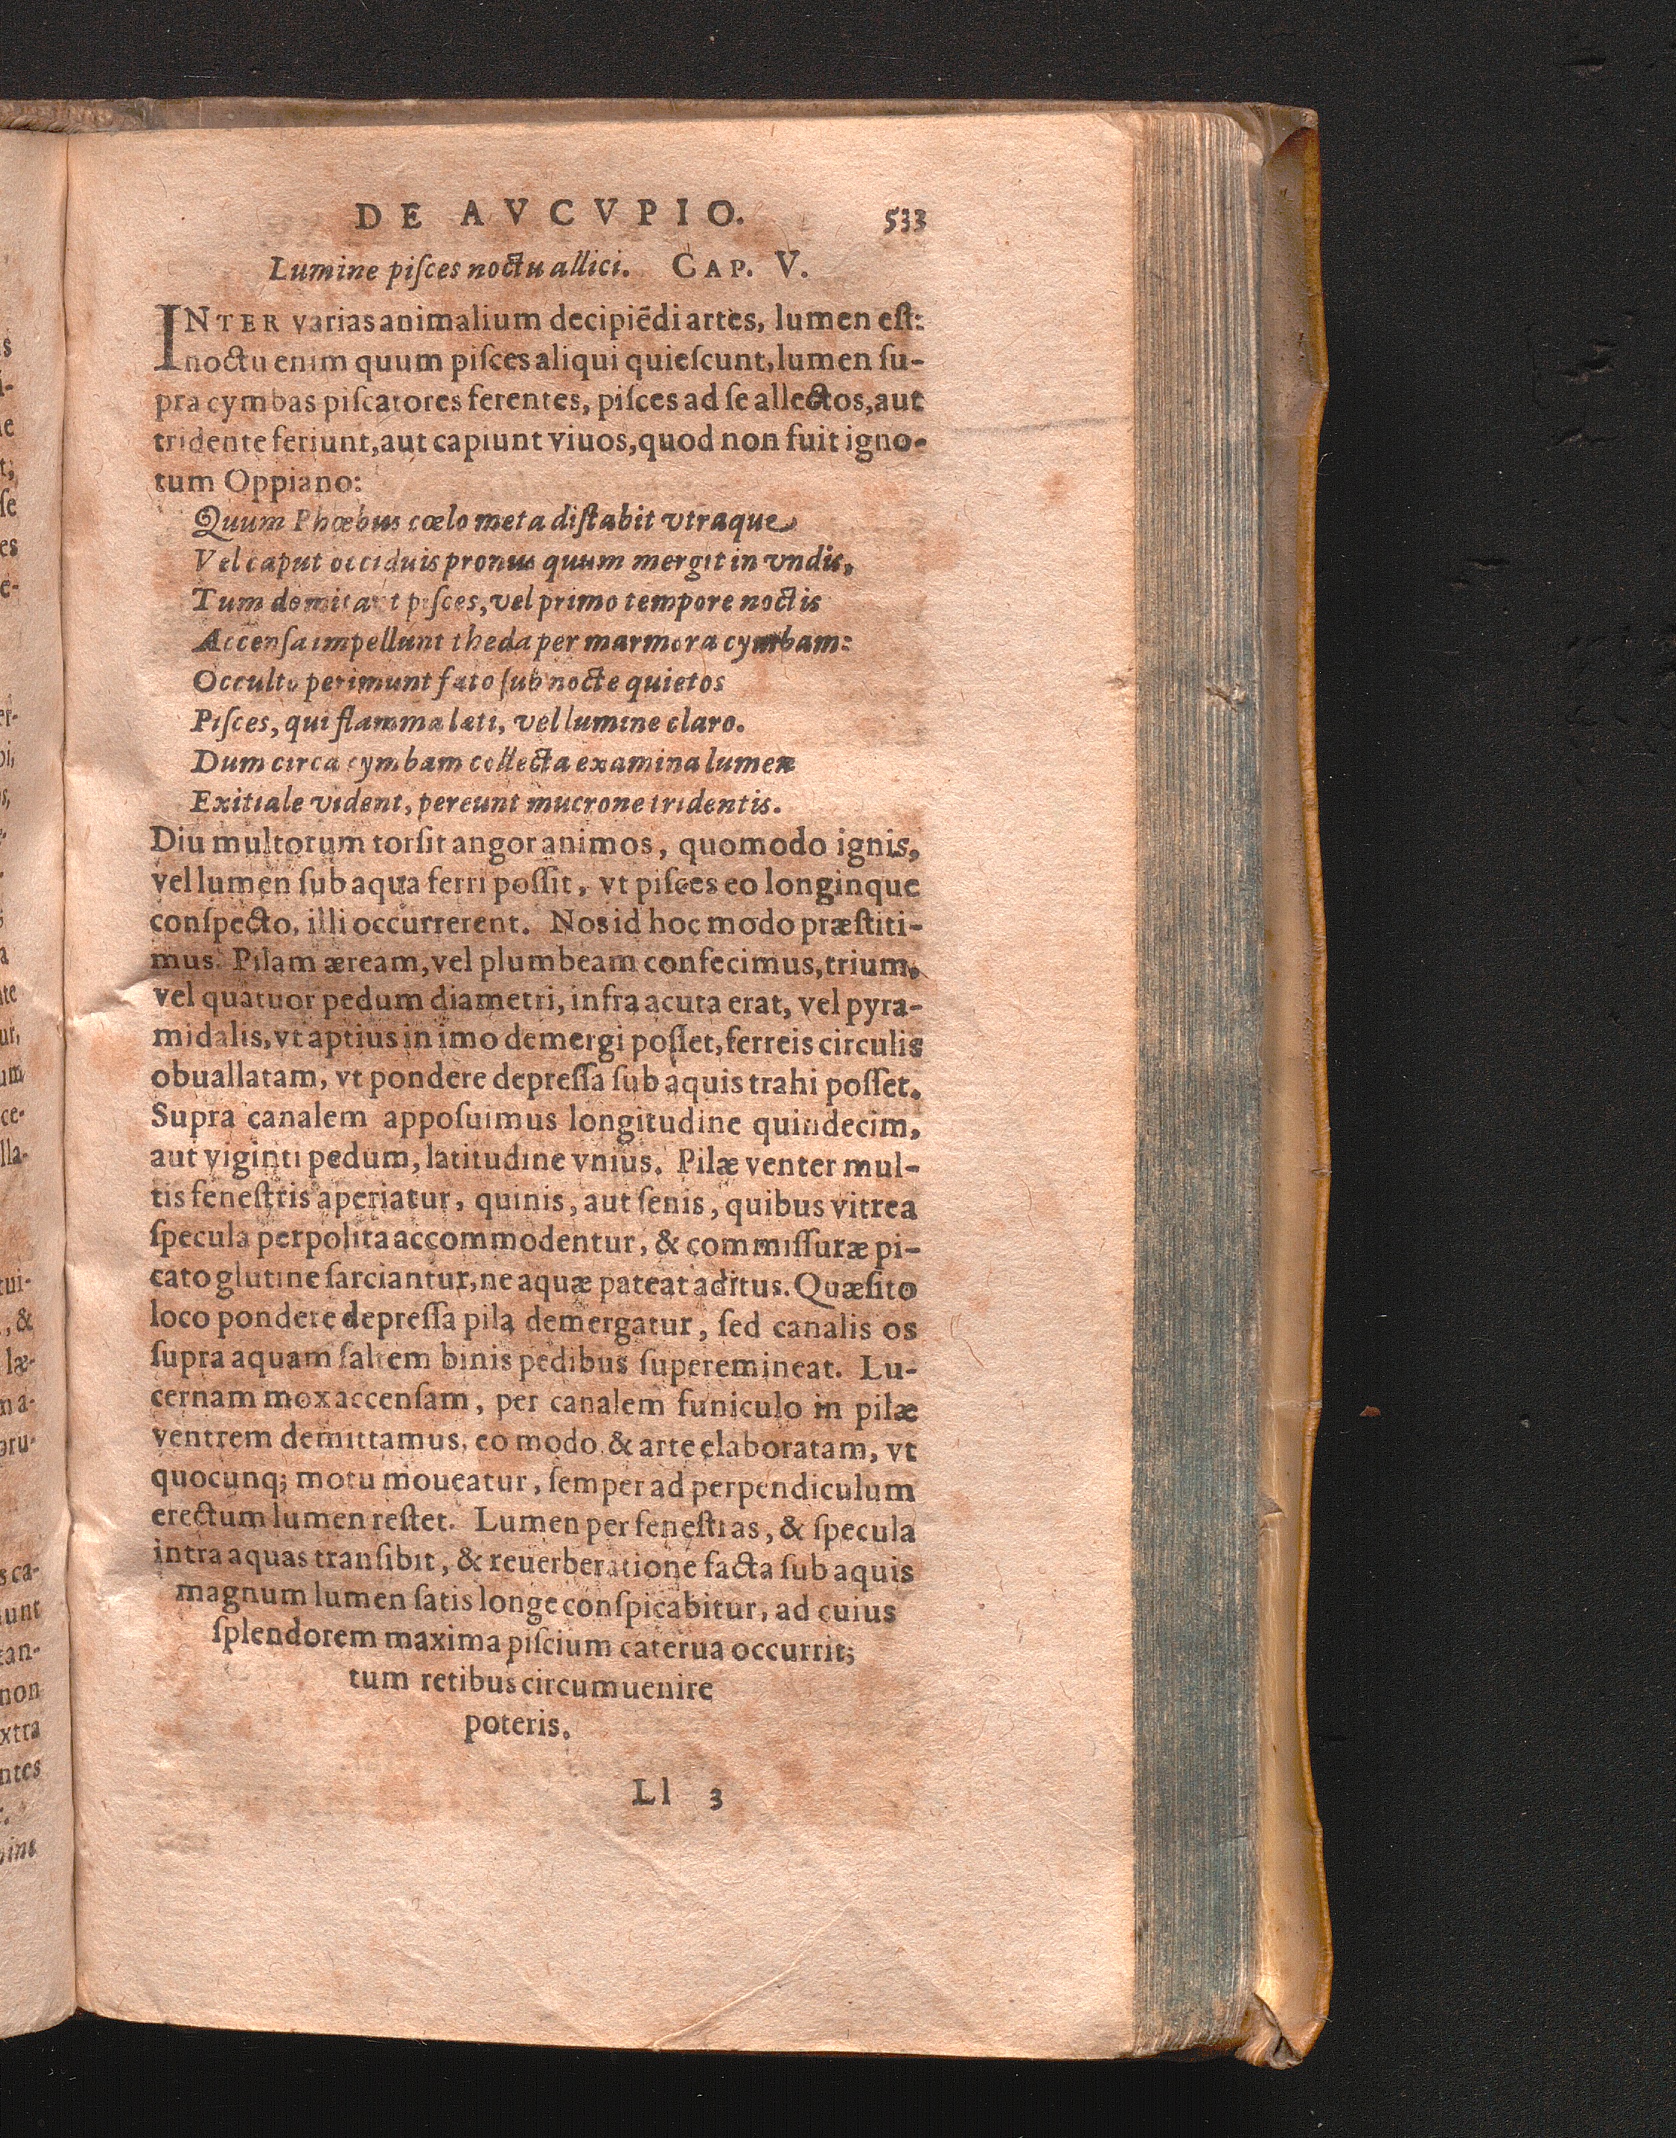 DE AVCVPIO. 533
Lumine piſces noctu allici. CAP. V.
INTER varias animalium decipiēdi artes, lumen eſt:
noctu enim quum piſces aliqui quieſcunt, lumen ſu-
pra cymbas piſcatores ferentes, piſces ad ſe allectos, aut
tridente feriunt, aut capiunt viuos, quod non fuit igno-
tum Oppiano:
Quum Phœbus cœlo meta diſtabit vtraque
Vel caput occiduis pronus quum mergit in vndis,
Tum domitant piſces, vel primo tempore noctis
Accenſa impellunt theda per marmora cymbam:
Occulto perimunt fato ſub nocte quietos
Piſces, qui flamma læti, vel lumine claro.
Dum circa cymbam collecta examina lumen
Exitiale vident, pereunt mucrone tridentis.
Diu multorum torſit angor animos, quomodo ignis,
vel lumen ſub aqua ferri poſſit, vt piſces eo longinque
conſpecto, illi occurrerent. Nos id hoc modo præſtiti-
mus. Pilam æream, vel plumbeam confecimus, trium,
vel quatuor pedum diametri, infra acuta erat, vel pyra-
midalis, vt aptius in imo demergi poſſet, ferreis circulis
obuallatam, vt pondere depreſſa ſub aquis trahi poſſet.
Supra canalem appoſuimus longitudine quindecim,
aut viginti pedum, latitudine vnius. Pilæ venter mul-
tis feneſtris aperiatur, quinis, aut ſenis, quibus vitrea
ſpecula perpolita accommodentur, & commiſſuræ pi-
cato glutine ſarciantur, ne aquæ pateat aditus. Quæſito
loco pondere depreſſa pila demergatur, ſed canalis os
ſupra aquam ſaltem binis pedibus ſuperemineat. Lu-
cernam mox accenſam, per canalem funiculo in pilæ
ventrem demittamus, eo modo & arte elaboratam, vt
quocunq; motu moueatur, ſemper ad perpendiculum
erectum lumen reſtet. Lumen per feneſtras, & ſpecula
intra aquas tranſibit, & reuerberatione facta ſub aquis
magnum lumen ſatis longe conſpicabitur, ad cuius
ſplendorem maxima piſcium caterua occurrit;
tum retibus circumuenire
poteris.
Ll 3